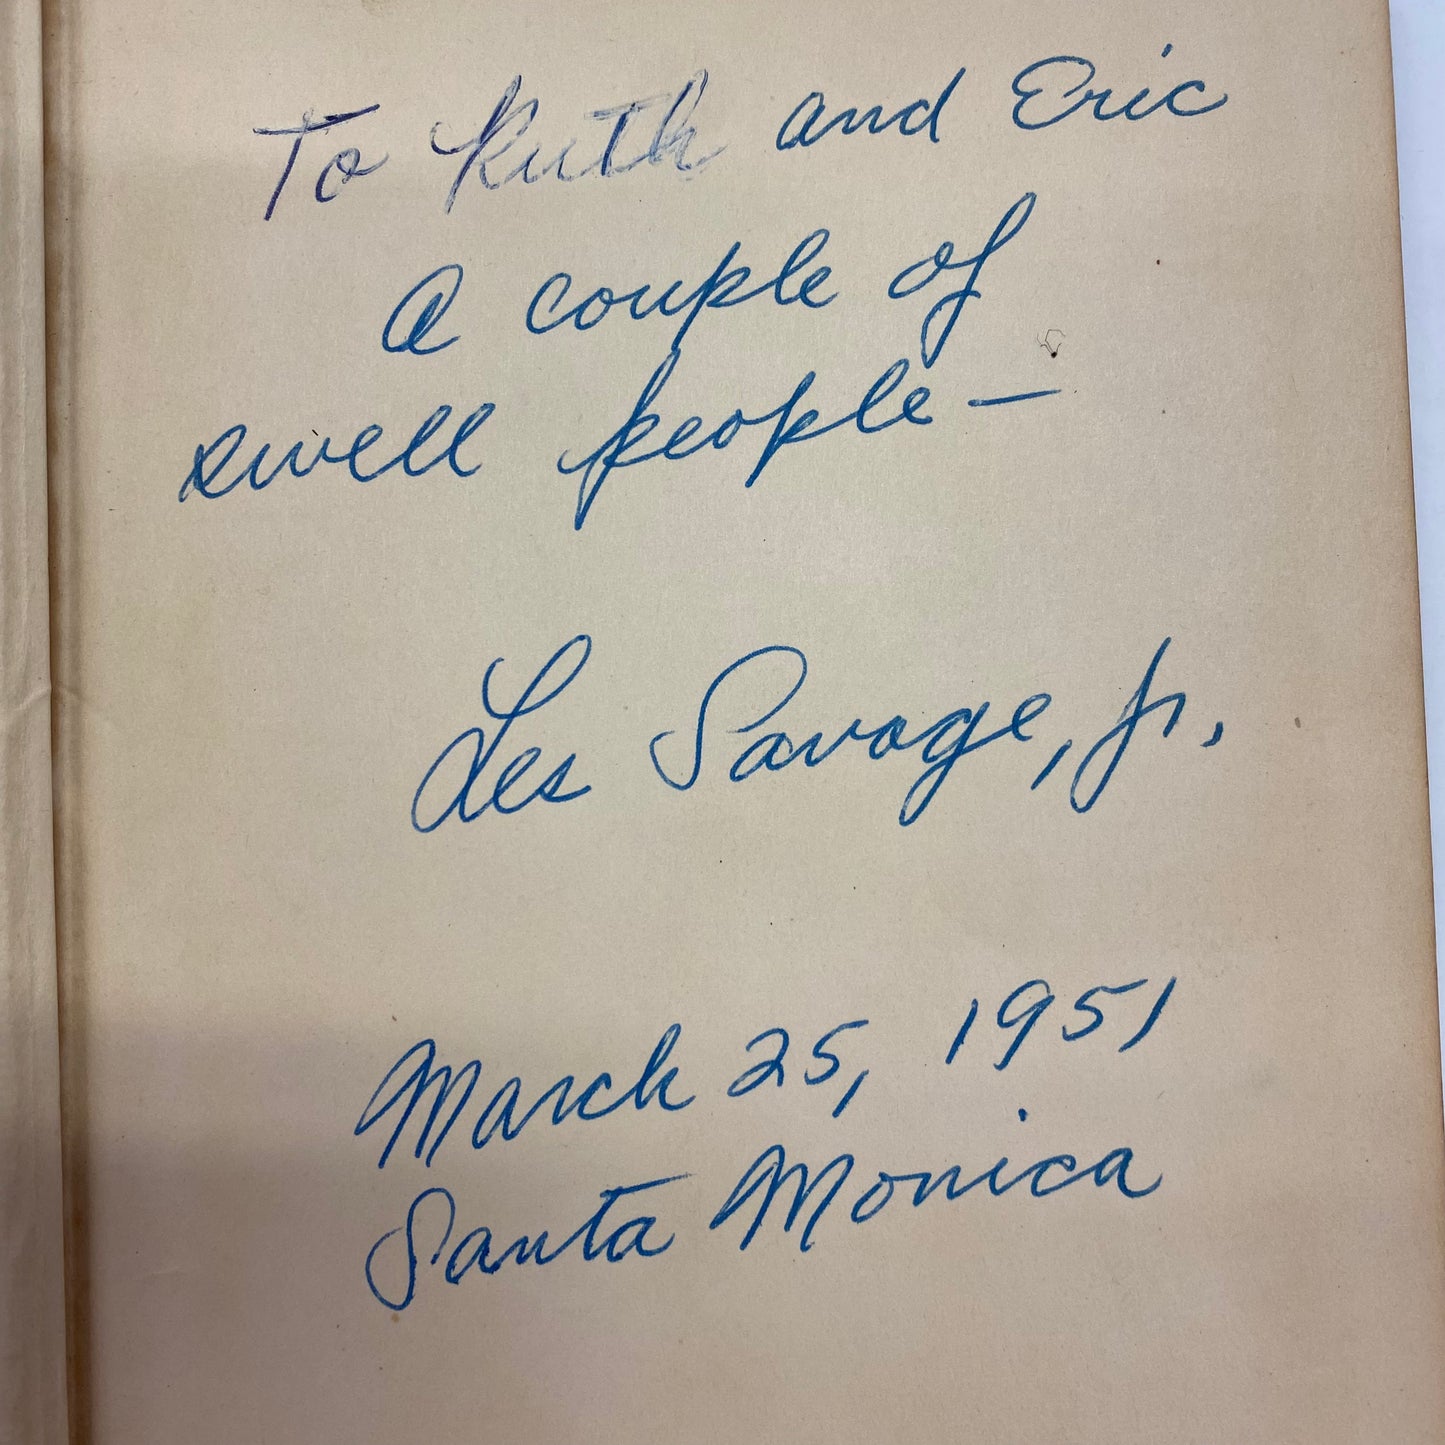 To Ruth and Eric
A couple of
swell people —
Les Savage, Jr.
March 25, 1951
Santa Monica